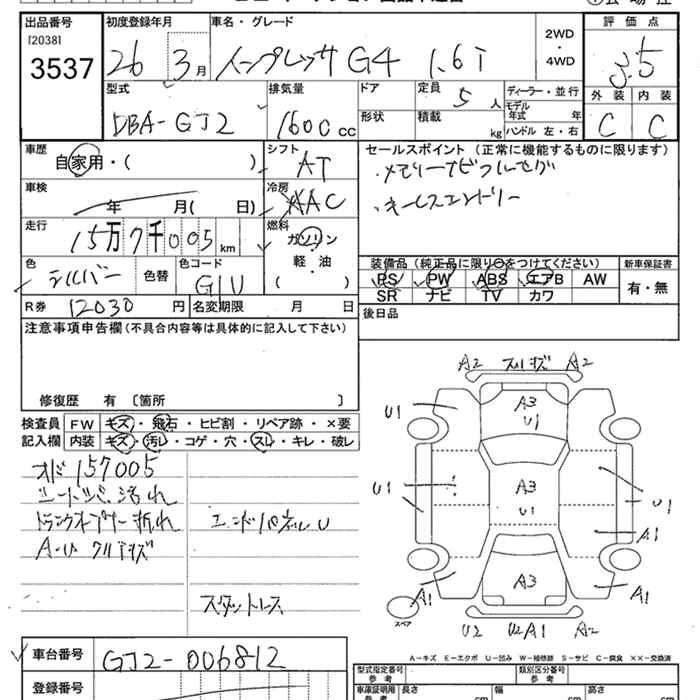 出品番号 初度登録年月 車名・グレード 評価点
[2038]
3537 26 3月 インプレッサ G4 1.6i 2WD・4WD 3.5
型式 排気量 ドア 定員 5人 ディーラー・並行 外装 内装
DBA-GJ2 1600 cc 形状 積載 kg モデル年式 年 C C
ハンドル 左・右
車歴 シフト セールスポイント(正常に機能するものに限ります)
自家用・( ) AT ・メモリーナビフルセグ
車検 冷房 ・キーレスエントリー
年 月( 日) AAC
走行 燃料
15万7千005km ガソリン
軽・油
( )
色 色替 色コード 装備品(純正品に限り○をつけてください) 新車保証書
シルバー G1U PS PW ABS エアB AW 有・無
SR ナビ TV カワ
R券 12030円 名変期限 月 日 後日品
注意事項申告欄(不具合内容等は具体的に記入して下さい)
修復歴 有 〔箇所 〕
検査員 FW キズ・飛石・ヒビ割・リペア跡・×要
記入欄 内装 キズ・汚レ・コゲ・穴・スレ・キレ・破レ
オド157005
シート 汚れ
折れ
エンドパネルU
スタットレス
A2 スリキズ A2
A3
U1
U1
A3
U1
U1
U1
A1
A3
A1 A1
スペア
U2 U2A1 A2
A-キズ E-エクボ U-凹み W-補修跡 S-サビ C-腐食 XX-交換済
車台番号 GJ2-006812
型式指定番号 参考 類別区分番号 参考
登録番号
車庫証明用 参考 長さ cm 幅 cm 高さ cm